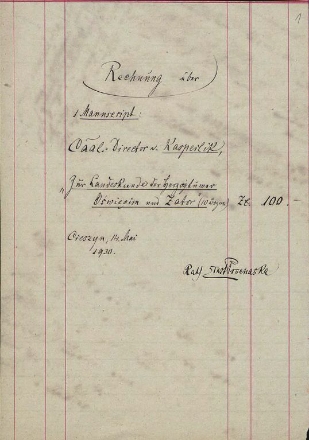 1
Rechnung über
1 Manuscript:
Cäal. Director v. Kasperlik,
"Zur Landeskunde der Herzogtümer
Oswiecim und Zator Zł. 100 -
Cieszyn, 14. Mai
1930.